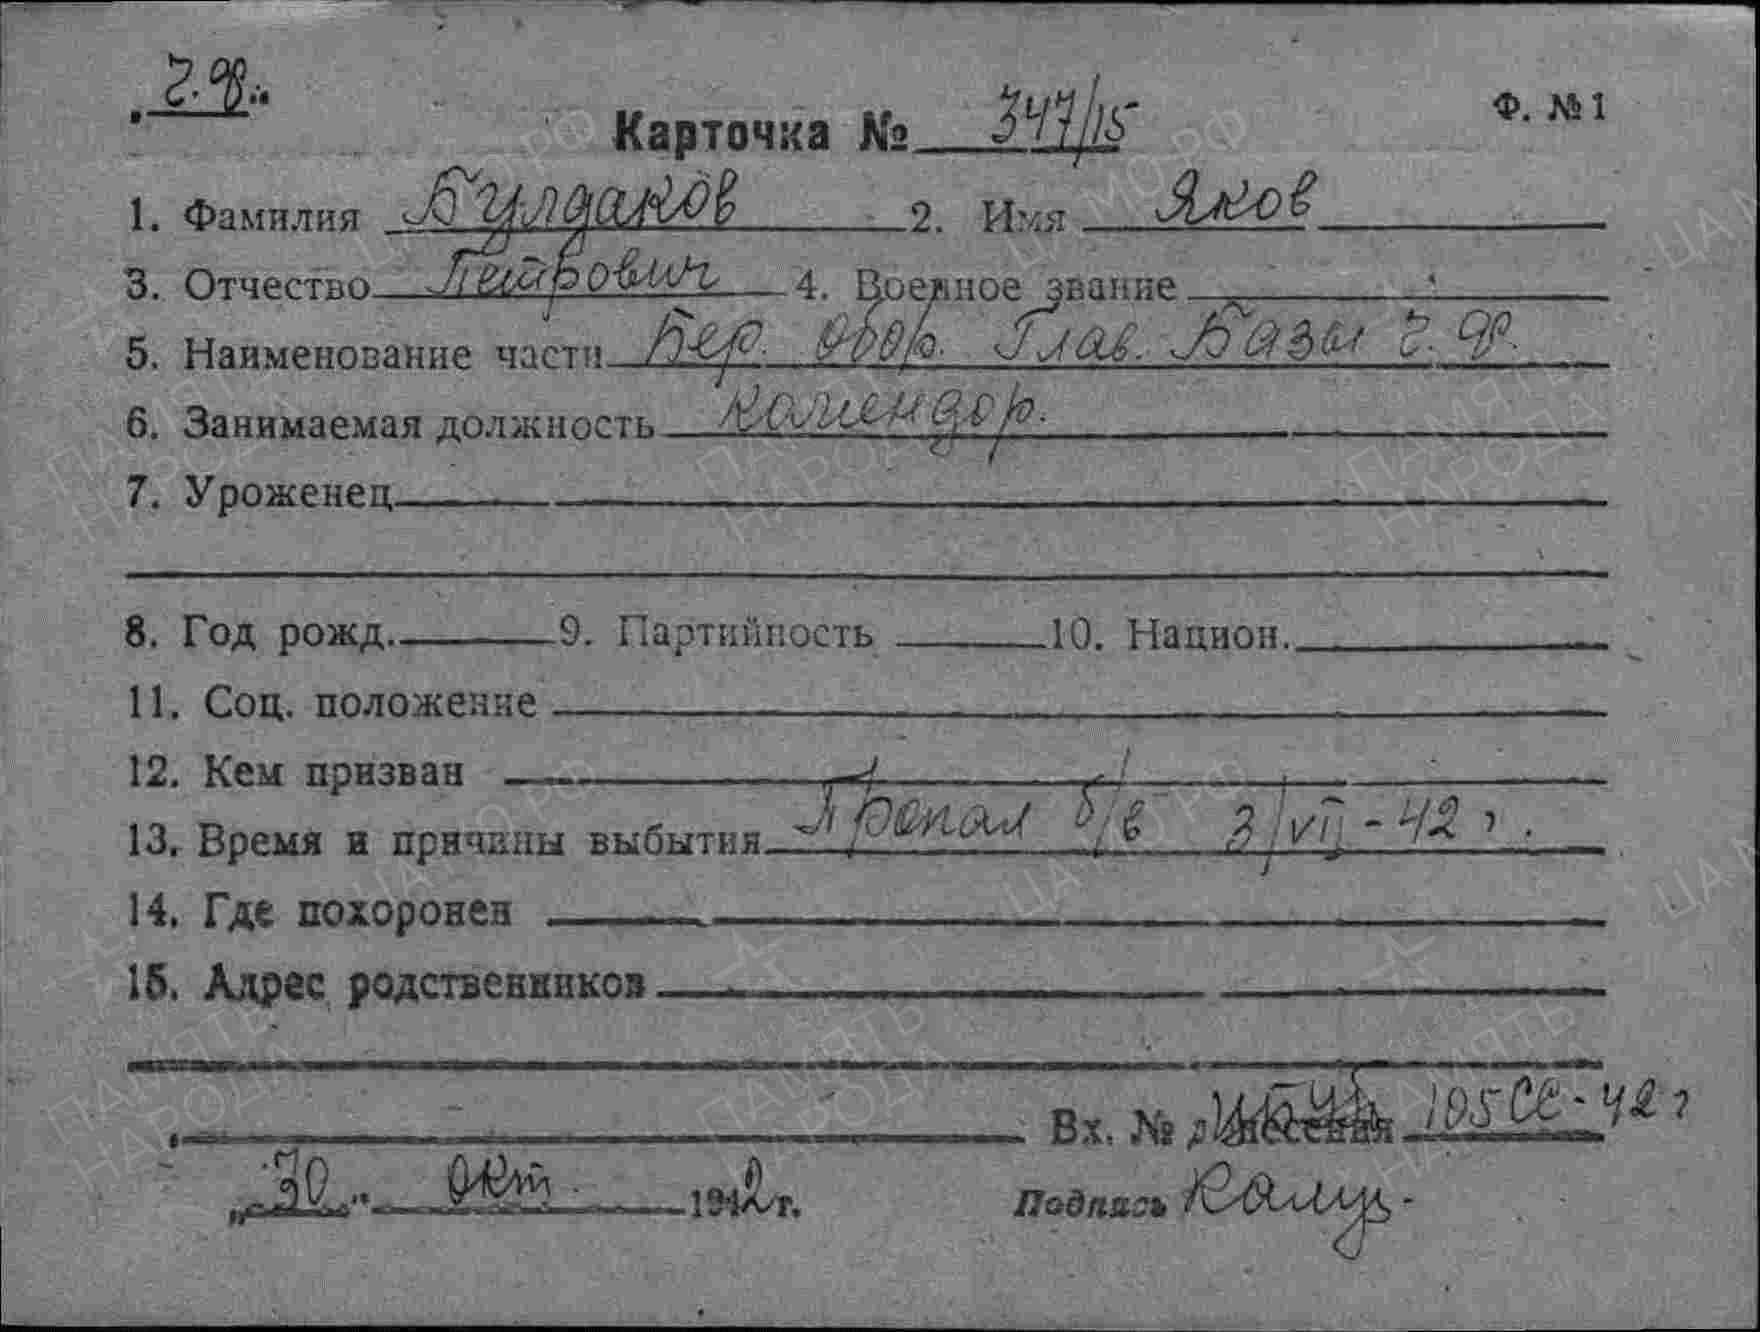 Ч.Ф.
Ф. №1
Карточка № 347/15
1. Фамилия Булдаков 2. Имя Яков
3. Отчество Петрович 4. Военное звание
5. Наименование части Бер. Обор. Глав. Базы Ч.Ф.
6. Занимаемая должность комендор.
7. Уроженец
8. Год рожд. 9. Партийность 10. Национ.
11. Соц. положение
12. Кем призван
13. Время и причины выбытия Пропал б/в 3/VII-42 г.
14. Где похоронен
15. Адрес родственников
Вх. № 105СС-42 г
„30“ окт. 1942 г. Подпись
ПАМЯТЬ НАРОДА
ЦАМО.РФ